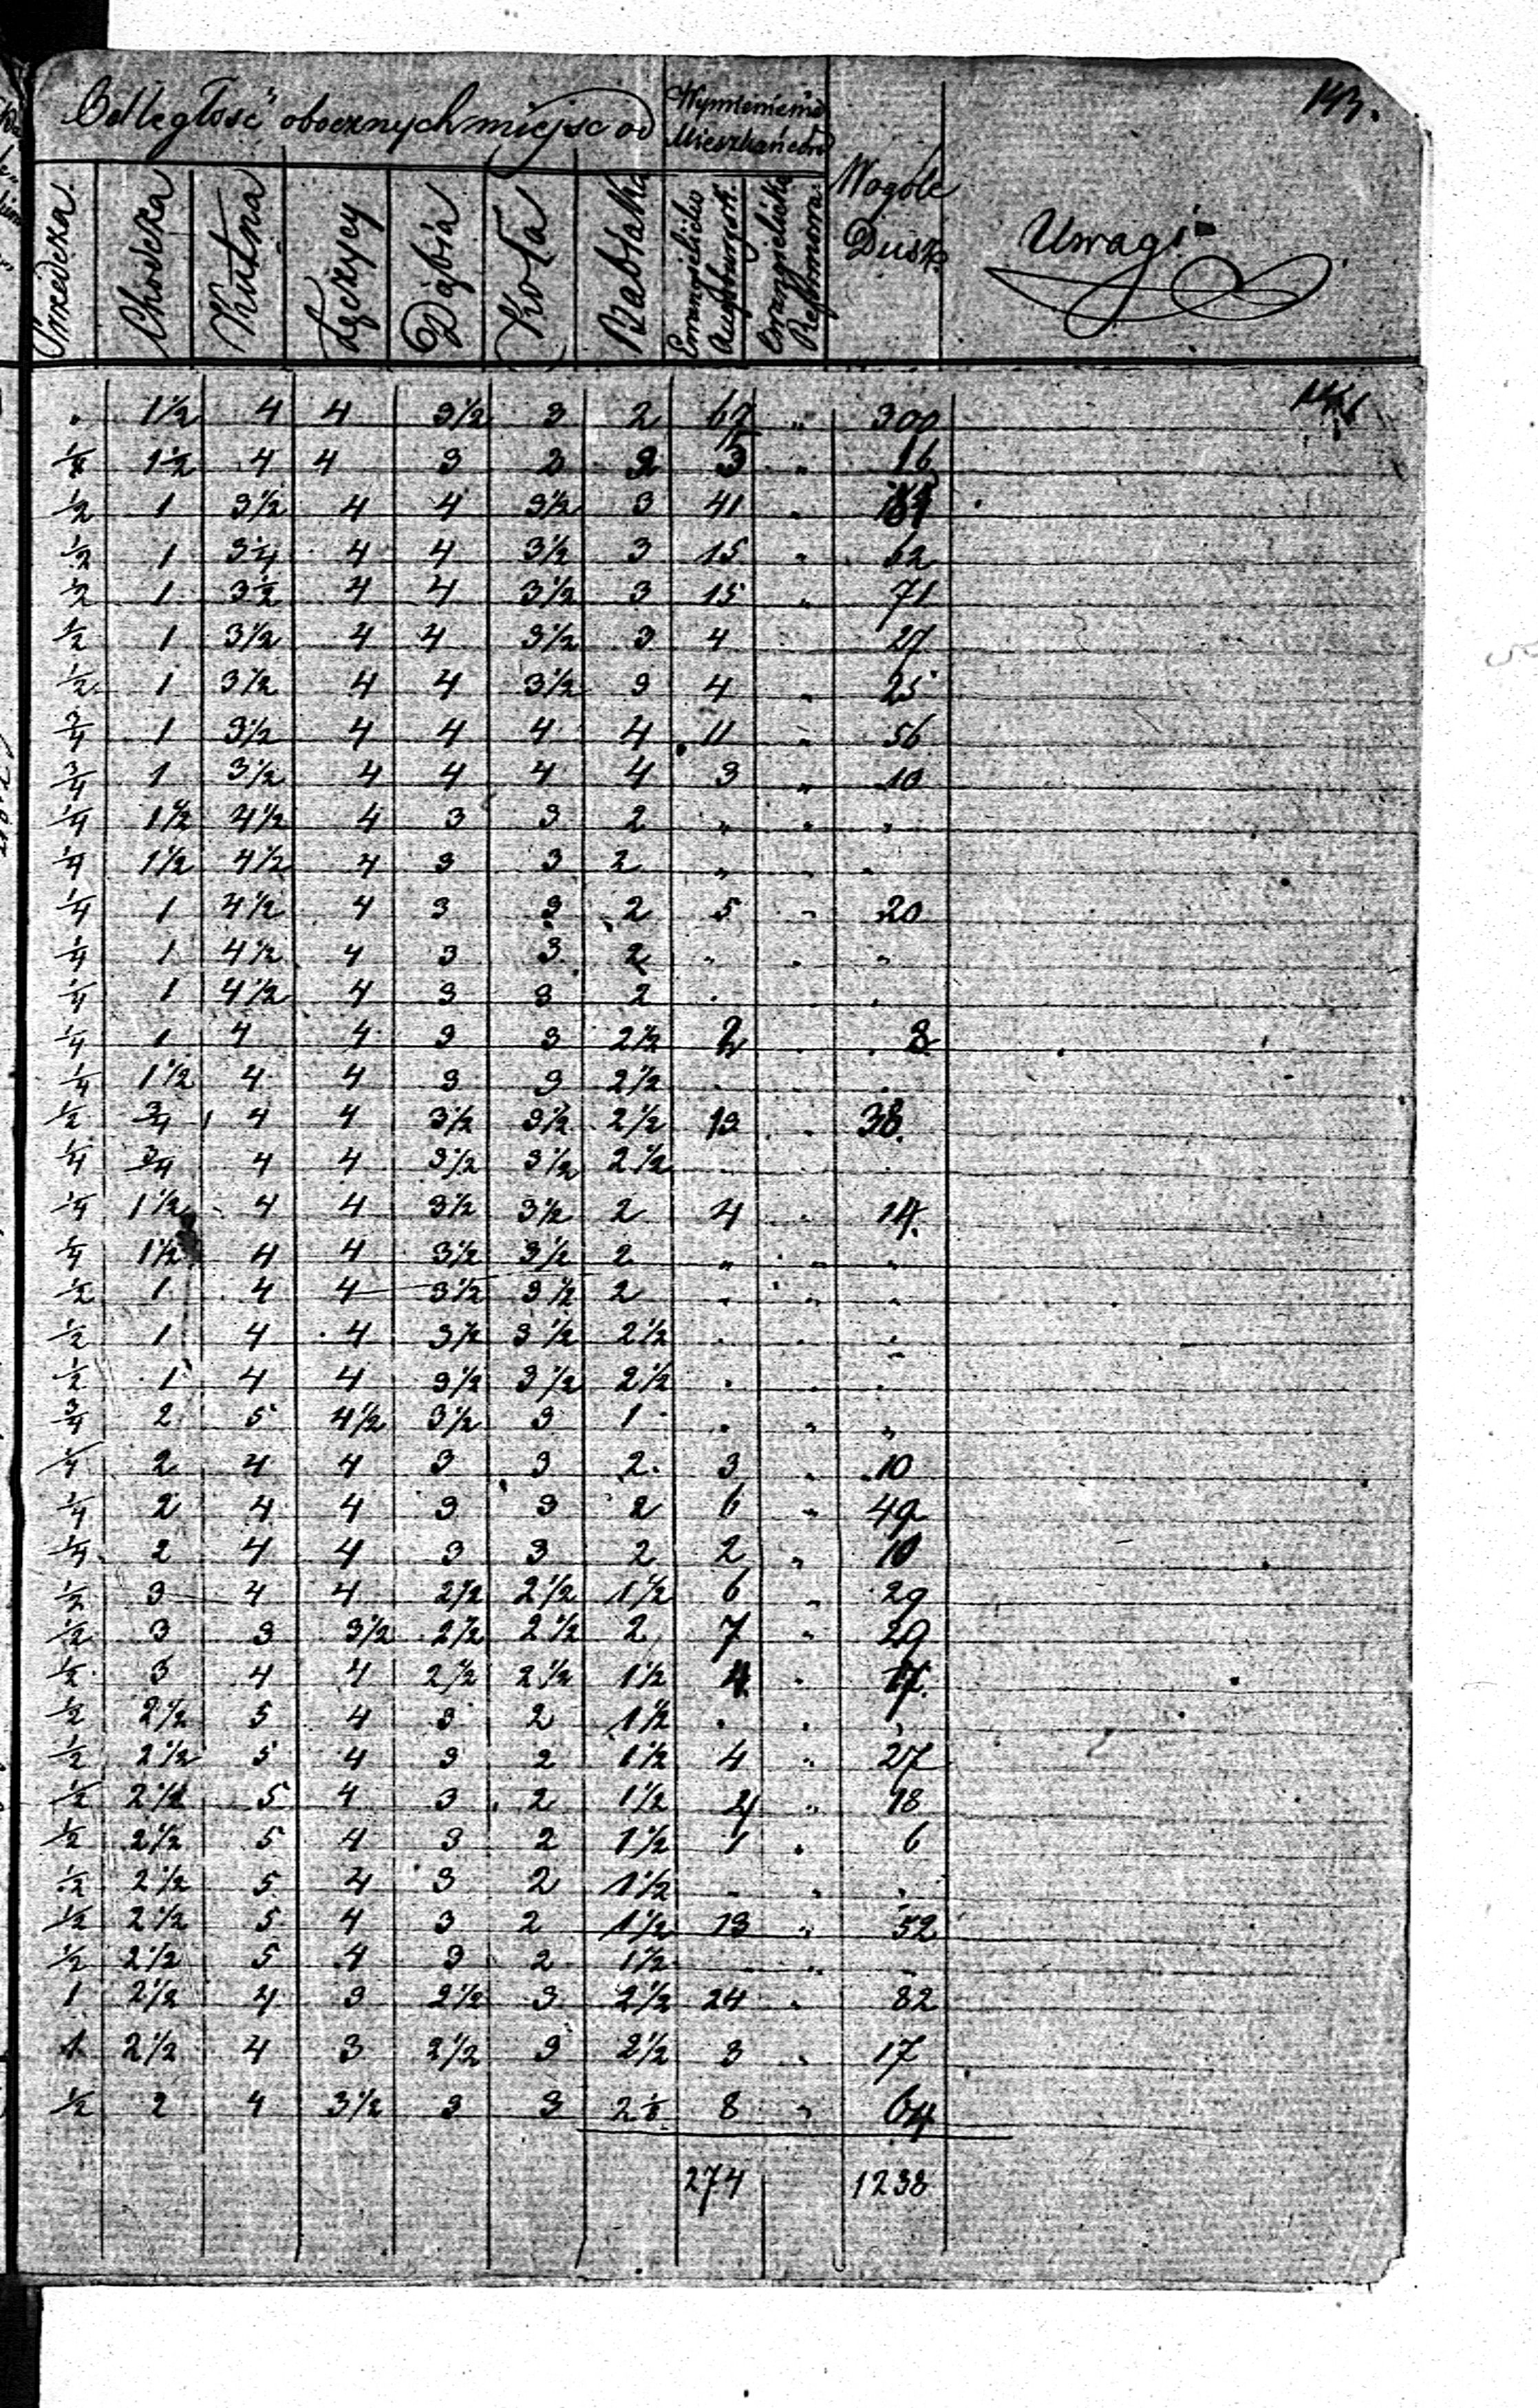 143.
Odległość obocznych miejsc od
Wymienienie Mieszkańców
Wogóle Dusz
Uwagi
Przedecza Chodcza Kutna Łęczycy Dąbia Koła Babiaka Ewangielicko Augsburgsk. Ewangielicko Reformowa.
" 1½ 4 4 3½ 3 2 67 " 300
1½ 4 4 3 3 2 3 " 16
½ 1 3½ 4 4 3½ 3 41 "
½ 1 3¼ 4 4 3½ 3 15 " 62
½ 1 3½ 4 4 3½ 3 15 " 71
½ 1 3½ 4 4 3½ 3 4 27
½ 1 3½ 4 4 3½ 3 4 " 25
¾ 1 3½ 4 4 4 4 11 " 56
¾ 1 3½ 4 4 4 4 3 " 10
¼ 1½ 4½ 4 3 3 2 " " "
¼ 1½ 4½ 4 3 3 2 " " "
¼ 1 4½ 4 3 3 2 5 " 20
¼ 1 4½ 4 3 3 2 " " "
¼ 1 4½ 4 3 3 2 " " "
¼ 1 4 4 3 3 2½ 2 " 8
¼ 1½ 4 4 3 3 2½ " " "
½ ¾ 4 4 3½ 3½ 2½ 13 " 38.
¼ ¾ 4 4 3½ 3½ 2½ " " "
¼ 1½ 4 4 3½ 3½ 2 4 " 14.
¼ 1½ 4 4 3½ 3½ 2 " " "
½ 1 4 4 3½ 3½ 2 " " "
½ 1 4 4 3½ 3½ 2½ " " "
½ 1 4 4 3½ 3½ 2½ " " "
¾ 2 5 4½ 3½ 3 1 " " "
¼ 2 4 4 3 3 2 3 " 10
¼ 2 4 4 3 3 2 6 " 49
¼ 2 4 4 3 3 2 2 " 10
½ 3 4 4 2½ 2½ 1½ 6 " 29
½ 3 3 3½ 2½ 2½ 2 7 " 29
½ 3 4 4 2½ 2½ 1½ 4 " 17.
½ 2½ 5 4 3 2 1½ " " "
½ 2½ 5 4 3 2 1½ 4 " 27
½ 2½ 5 4 3 2 1½ 4 " 18
½ 2½ 5 4 3 2 1½ 1 " 6
½ 2½ 5 4 3 2 1½ " " "
½ 2½ 5 4 3 2 1½ 13 " 52
½ 2½ 5 4 3 2 1½ " " "
1 2½ 4 3 2½ 3 2½ 24 " 82
1 2½ 4 3 2½ 3 2½ 3 " 17
½ 2 4 3½ 3 3 8 " 64
274 1238